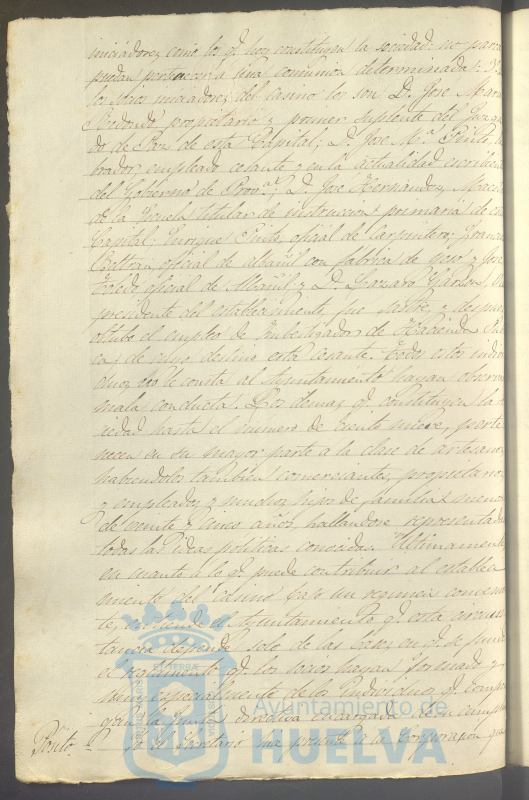 iniciadores como los q.e hoy constituyen la sociedad: no parece
puedan pertenecer a una comunion determinada: Y
los socios iniciadores del casino los son D. Jose Maria
Redondo propietario y primer suplente del Juzga
do de Paz de esta Capital; D. Jose M.a Pinto, la
brador, empleado cesante y en la actualidad escribiente
del Gobierno de Prov.a: D. Jose Hernandez, Maestro
de la Escuela titular de instruccion primaria de esta
Capital; Enrique Pinto, oficial de Carpintero; Francisco
Beltran, oficial de albañil con fabrica de yeso y Jose
Toledo oficial de Albañil y D. Lazaro
presidente del establecimiento, fue sastre, y despues
obtubo el empleo de Imbestigador de Hacienda Publi
ca, de cuyo destino está cesante. Todos estos indivi
duos no le consta al Ayuntamiento hayan observado
mala conducta. Los demas q.e constituyen la so
ciedad hasta el numero de treinta y nueve, perte
necen en su mayor parte a la clase de artesanos
habiendolos tambien comerciantes, propietarios
y empleados y muchos hijos de familia menores
de veinte y cinco años, hallandose representadas
todas las ideas politicas conocidas. Ultimamente
en cuanto a lo q.e puede contribuir al estableci
miento del casino bajo un regimen convenien
te, entiende el Ayuntamiento q.e esta circuns
tancia depende solo de las bases en q.e se funde
el reglamento q.e los socios hayan formado y
muy especialmente de los Individuos q.e compon
gan la Junta directiva encargada de su cumpli
Posito. Yo el Secretario hice presente a la Corporacion que
Ayuntamiento de
HUELVA